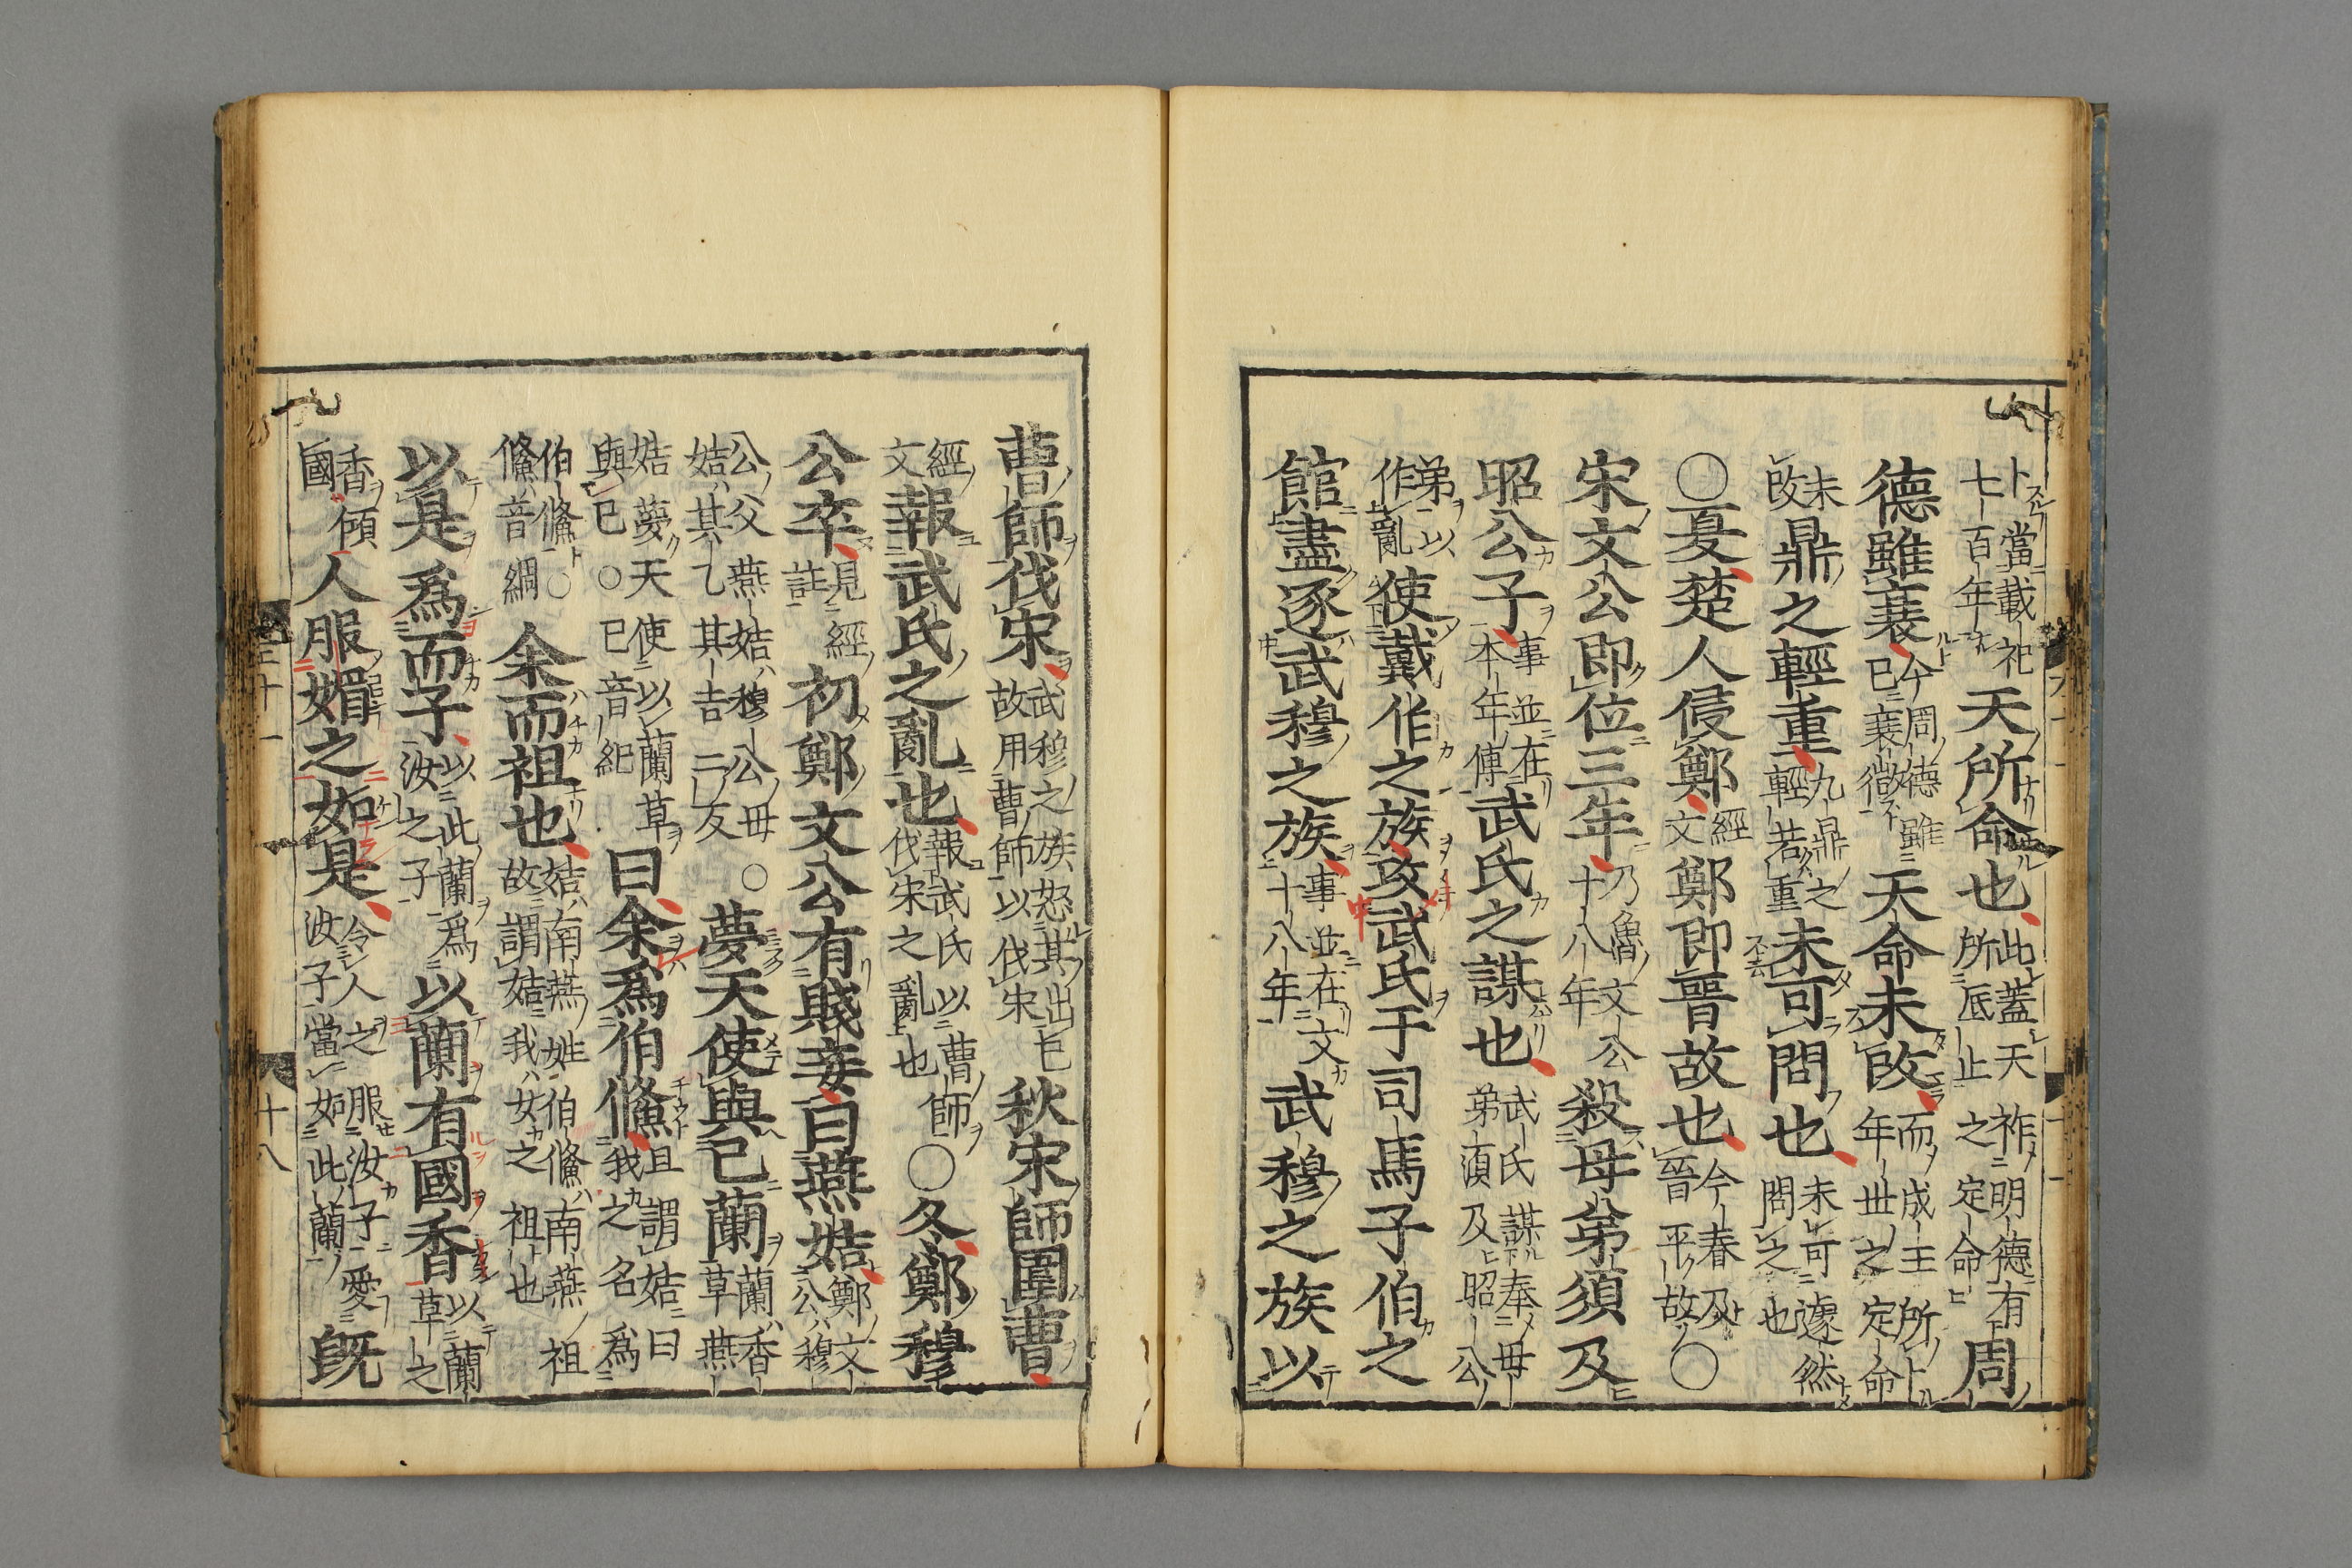 卜當載祀七百年天所命也此蓋天祚明德有所底止之定命周
德雖衰今周德雖已衰微天命未改而成王所卜年世之定命
未改鼎之輕重九鼎之輕若重未可問也未可遽然問之也
○夏楚人侵鄭經文鄭即晉故也今春及晉平故○
宋文公即位三年乃魯文公十八年殺母弟須及
昭公子事並在本年傳武氏之謀也武氏謀奉母弟湏及昭公
弟以作亂使戴作之族攻武氏于司馬子伯之
館盡逐武穆之族事並在文十八年武穆之族以
曹師伐宋武穆之族怒其出已故用曹師以伐宋秋宋師圍曹
經文報武氏之亂也報武氏以曹師伐宋之亂也○冬鄭穆
公卒見經註初鄭文公有賤妾曰燕姞鄭文公穆
公父燕姞穆公母○姞其乙其吉二反夢天使與己蘭蘭香草燕
姞夢天使以蘭草與已○已音紀曰余爲伯鯈且謂姞曰我之名爲
伯鯈○鯈音綢余而祖也姞南燕姓伯鯈南燕祖故謂姞我女之祖也
以是爲而子以此蘭爲汝之子以蘭有國香以蘭草之
香傾國人服媚之如是令人之服汝子愛汝子當如此蘭既
十八